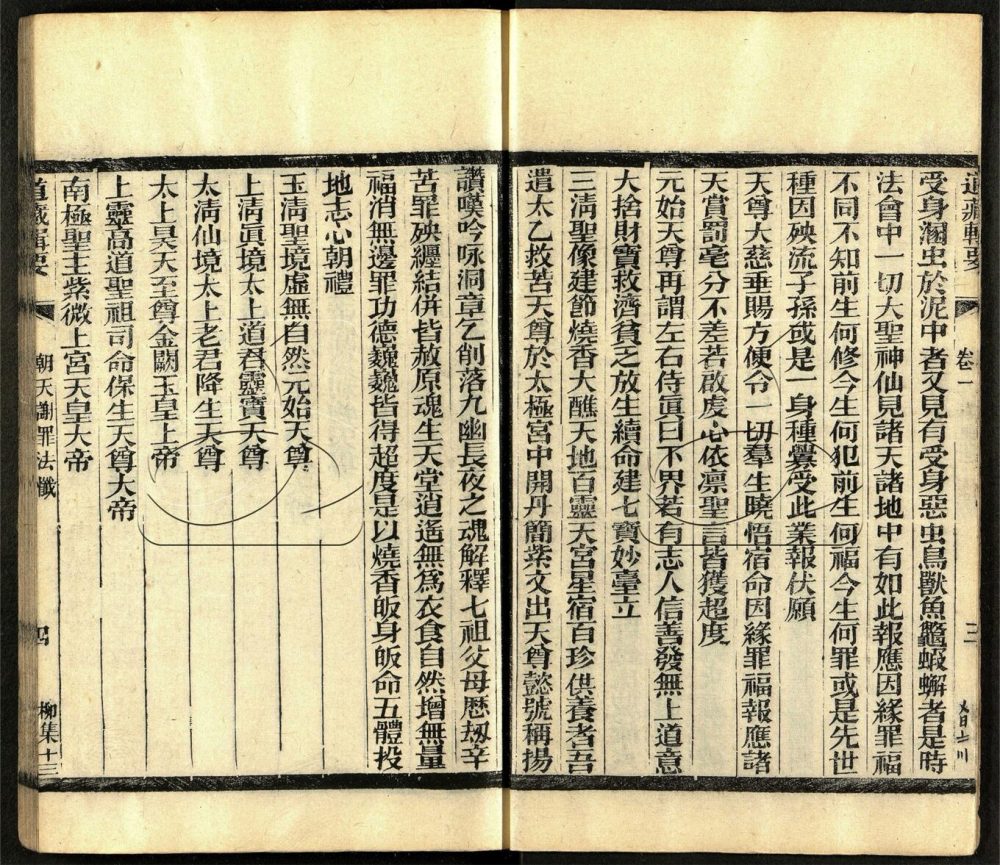 道藏輯要 卷一 三
受身溷虫於泥中者又見有受身惡虫鳥獸魚鼈蝦蠏者是時
法會中一切大聖神仙見諸天諸地中有如此報應因緣罪福
不同不知前生何修今生何犯前生何福今生何罪或是先世
種因殃流子孫或是一身種釁受此業報伏願
天尊大慈垂賜方便令一切羣生曉悟宿命因緣罪福報應諸
天賞罰毫分不差若啟虔心依凛聖言皆獲超度
元始天尊再謂左右侍眞曰下界若有志人信善發無上道意
大捨財寶救濟貧乏放生續命建七寶妙臺立
三淸聖像建節燒香大醮天地百靈天宮星宿百珍供養者吾
遣太乙救苦天尊於太極宮中開丹簡紫文出天尊懿號稱揚
讚嘆吟咏洞章乞削落九幽長夜之魂解釋七祖父母歷刼辛
苦罪殃纏結併皆赦原魂生天堂逍遙無爲衣食自然增無量
福消無邊罪功德巍巍皆得超度是以燒香皈身皈命五體投
地志心朝禮
玉淸聖境虛無自然元始天尊
上淸眞境太上道君靈寶天尊
太淸仙境太上老君降生天尊
太上昊天至尊金闕玉皇上帝
上靈高道聖祖司命保生天尊大帝
南極聖主紫微上宮天皇大帝
道藏輯要 朝天謝罪法懺 四 柳集十三